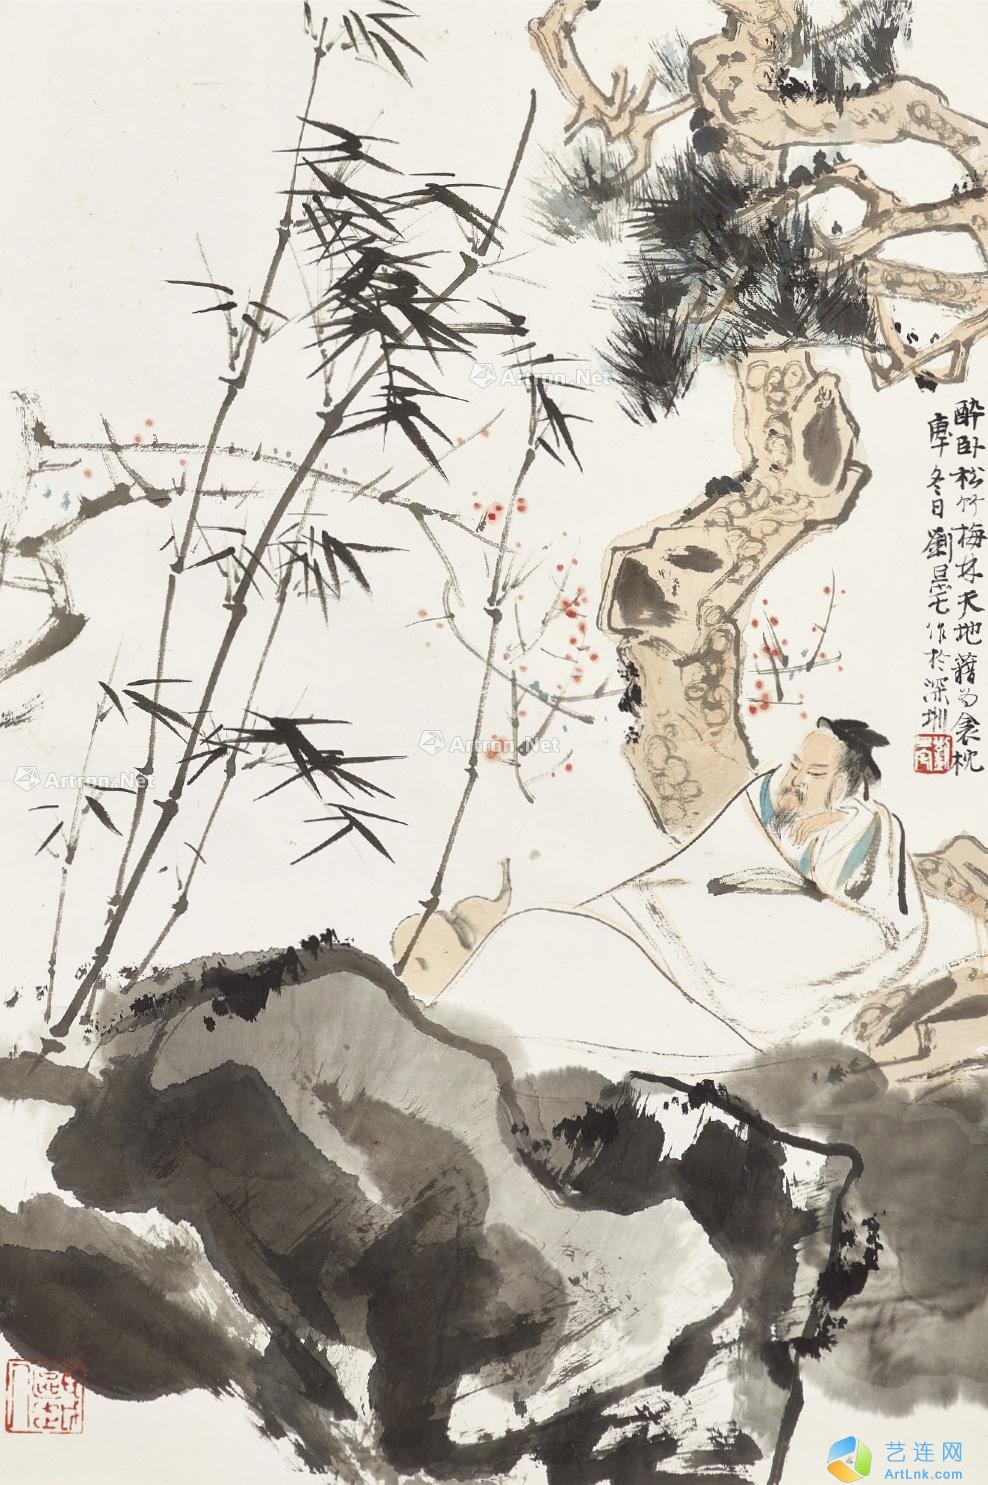 醉卧松竹梅林天地藉为衾枕
庚午冬日劉昱屯作於深圳
Artron.Net
Artron.Net
Artron.Net
艺连网
ArtLnk.com